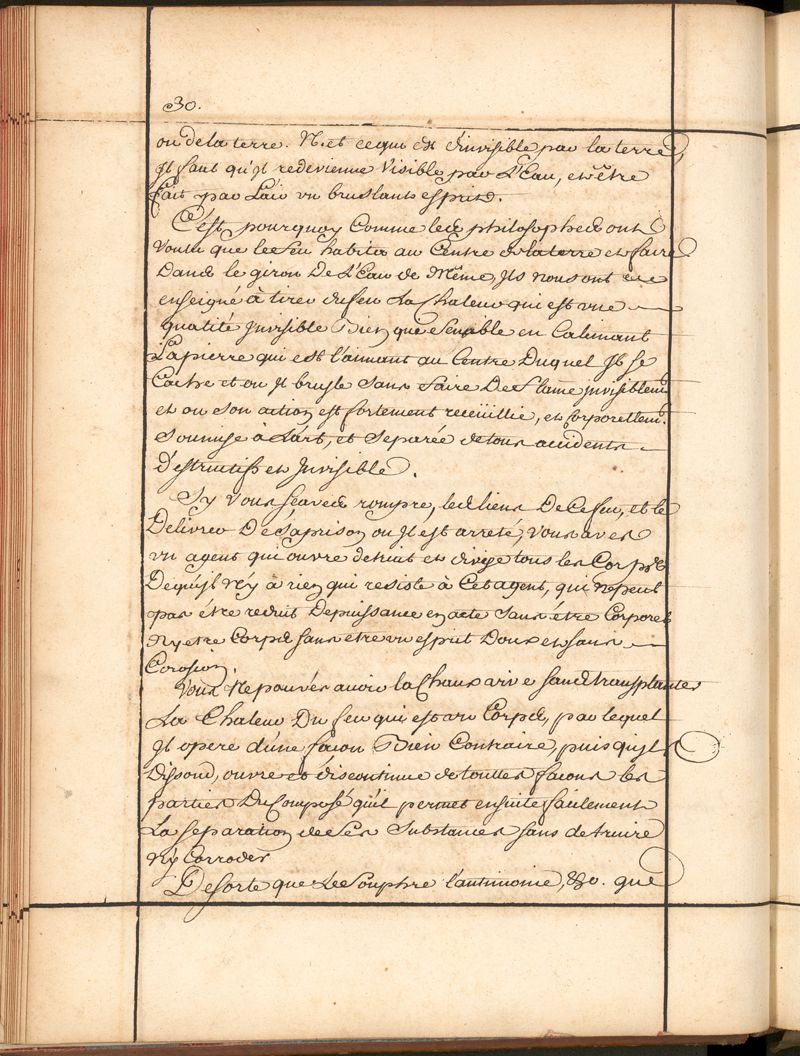 30.
ou de la terre. N. et ce qui est invisible par la terre,
Jl faut qu'Jl redevienne Visible par L'Eau, et être
fait par L'air un bruslant esprit.
C'est pourquoy Comme les philosophes ont
voulu que le feu habita au Centre de la terre et faire
Dans le giron De L'Eau de Même, Jls nous ont
enseigné à tirer du feu La Chaleur qui est une
qualité Jnvisible Bien que Sensible en Calcinant
La pierre qui est l'aimant au Centre Duquel Jl se
Cache et ou Jl brusle Sans faire De flame jnvisiblemt
et ou Son action est fortement receüillie, et Corporellemt.
Soumise à L'art, et Separée de tous accidents
D'estructifs et Jnvisible.
Sy Vous sçavez rompre, les liens De Ce feu, et le
Délivrer De Sa prison ou Jl est arreté, Vous aves
un agent qui ouvre detruit et divise tous les Corps
De qu'Jl N'y à rien qui resiste à Cet agent, qui ne peut
pas être reduit De puissance en acte Sans être Corporel
Ny etre Corps sans etre un esprit Doux et sans
Corosion.
Vous Ne pouvés avoir la Chaux vive sans transplanter
La Chaleur Du feu qui est au Corps, par lequel
Jl opere d'une facon Bien Contraire, puis qu'Jl
Dissoud, ouvre et discontinue de touttes facons les
parties Du Composé qu'il permet ensuite facilement
La separation de ses Substances sans detruire
Ny Corroder
De sorte que Le Souphre l'antimonie, &c. que